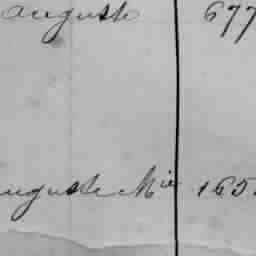 Auguste 677
Auguste Mie 165